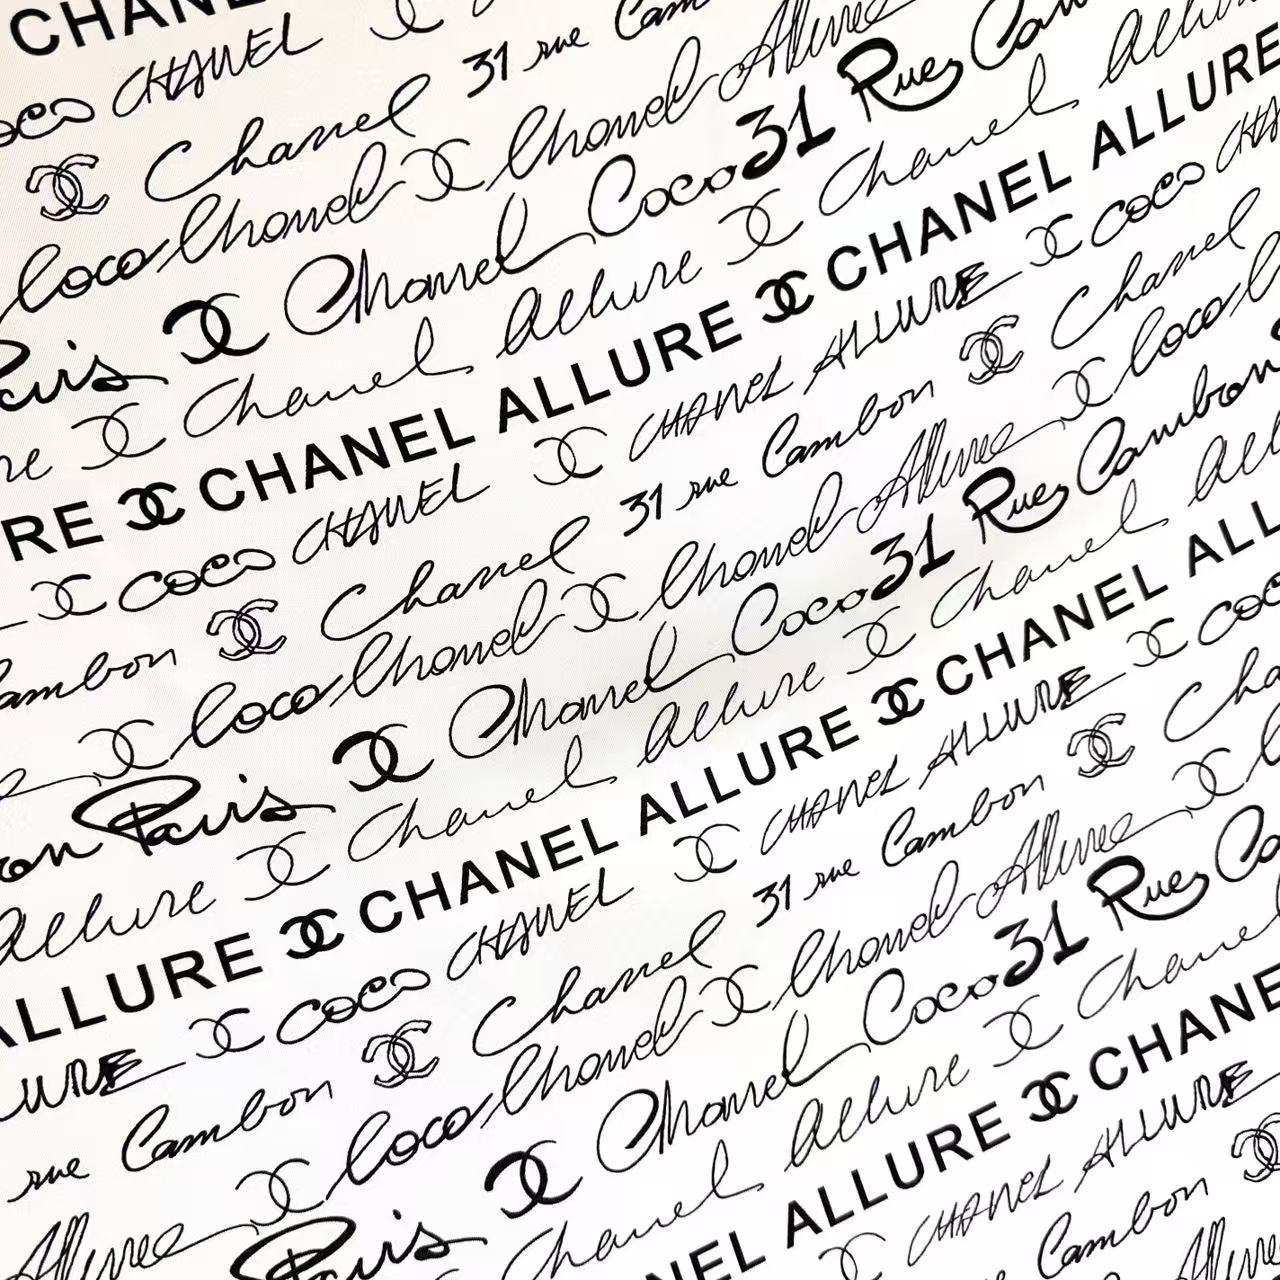 CHANE
coco CHANEL
Chanel 31 rue Cam
Coco Chanel Chanel Allure
Paris Chanel Coco 31 Rue Cam
re Chanel Allure Chanel Allu
RE CHANEL ALLURE CHANEL ALLURE
coco CHANEL CHANEL ALLURE coco CHA
Cambon Chanel 31 rue Cambon Chanel
Coco Chanel Chanel Allure Coco
on Paris Chanel Coco 31 Rue Cambon
Allure Chanel Allure Chanel All
ALLURE CHANEL ALLURE CHANEL ALL
URE coco CHANEL CHANEL ALLURE coc
rue Cambon Chanel 31 rue Cambon Cha
Allure Coco Chanel Chanel Allure
Paris Chanel Coco 31 Rue Ca
Chanel Allure Chanel
NEL ALLURE CHANE
CHANEL ALLURE
Cambon
Allure